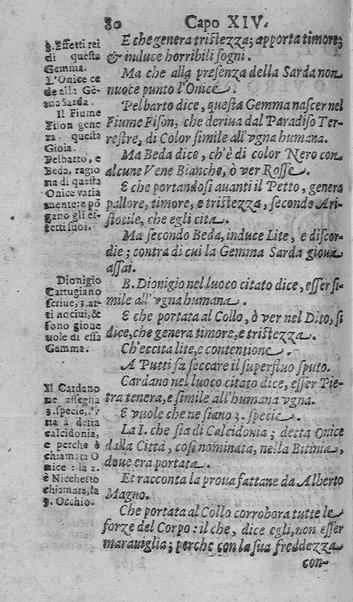 80 Capo XIV.
E che genera tristezza; apporta timore;
& induce horribili sogni.
Ma che alla presenza della Sarda non
nuoce punto l'Onice.
Pelbarto dice, questa Gemma nascer nel
Fiume Fison, che deriua dal Paradiso Ter-
restre, di Color simile all'vgna humana.
Ma Beda dice, ch'è di color Nero con
alcune Vene Bianche, ò ver Rosse.
E che portandosi auanti il Petto, genera
pallore, timore, e tristezza, secondo Ari-
stotile, che egli cita.
Ma secondo Beda, induce Lite, e discor-
die; contra di cui la Gemma Sarda gioua
assai.
B. Dionigio nel luoco citato dice, esser si-
mile all'vgna humana.
E che portata al Collo, ò ver nel Dito, si
dice, che genera timore, e tristezza.
Ch'eccita lite, e contentione.
A Putti fa seccare il superfluo sputo.
Cardano nel luoco citato dice, esser Pie-
tra tenera, e simile all'humana vgna.
E vuole che ne siano 3. specie.
La I. che sia di Calcidonia; detta Onice
dalla Città, così nominata, nella Bitinia,
doue era portata.
Et racconta la proua fattane da Alberto
Magno.
Che portata al Collo corrobora tutte le
forze del Corpo: il che, dice egli, non esser
marauiglia; perche con la sua freddezza
con-
§. Effetti rei
di questa
Gemma.
L'Onice ce
de alla Gẽ-
ma Sarda.
Il Fiume
Fison gene-
ra questa
Gioia.
Pelbarto, e
Beda, ragio
na di questa
Onice varia
mente: e põ
gono gli ef-
fetti suoi.
Dionigio
Cartugiano
scriue, 3. at-
ti nociui, &
sono gioue
uole di essa
Gemma.
Il Cardano
ne assegna
3. specie, l'v-
na è detta
calcidonia,
e perche è
chiamata O
nice: la 2.
è Nicchetto
chiamata, la
3. Occhio.